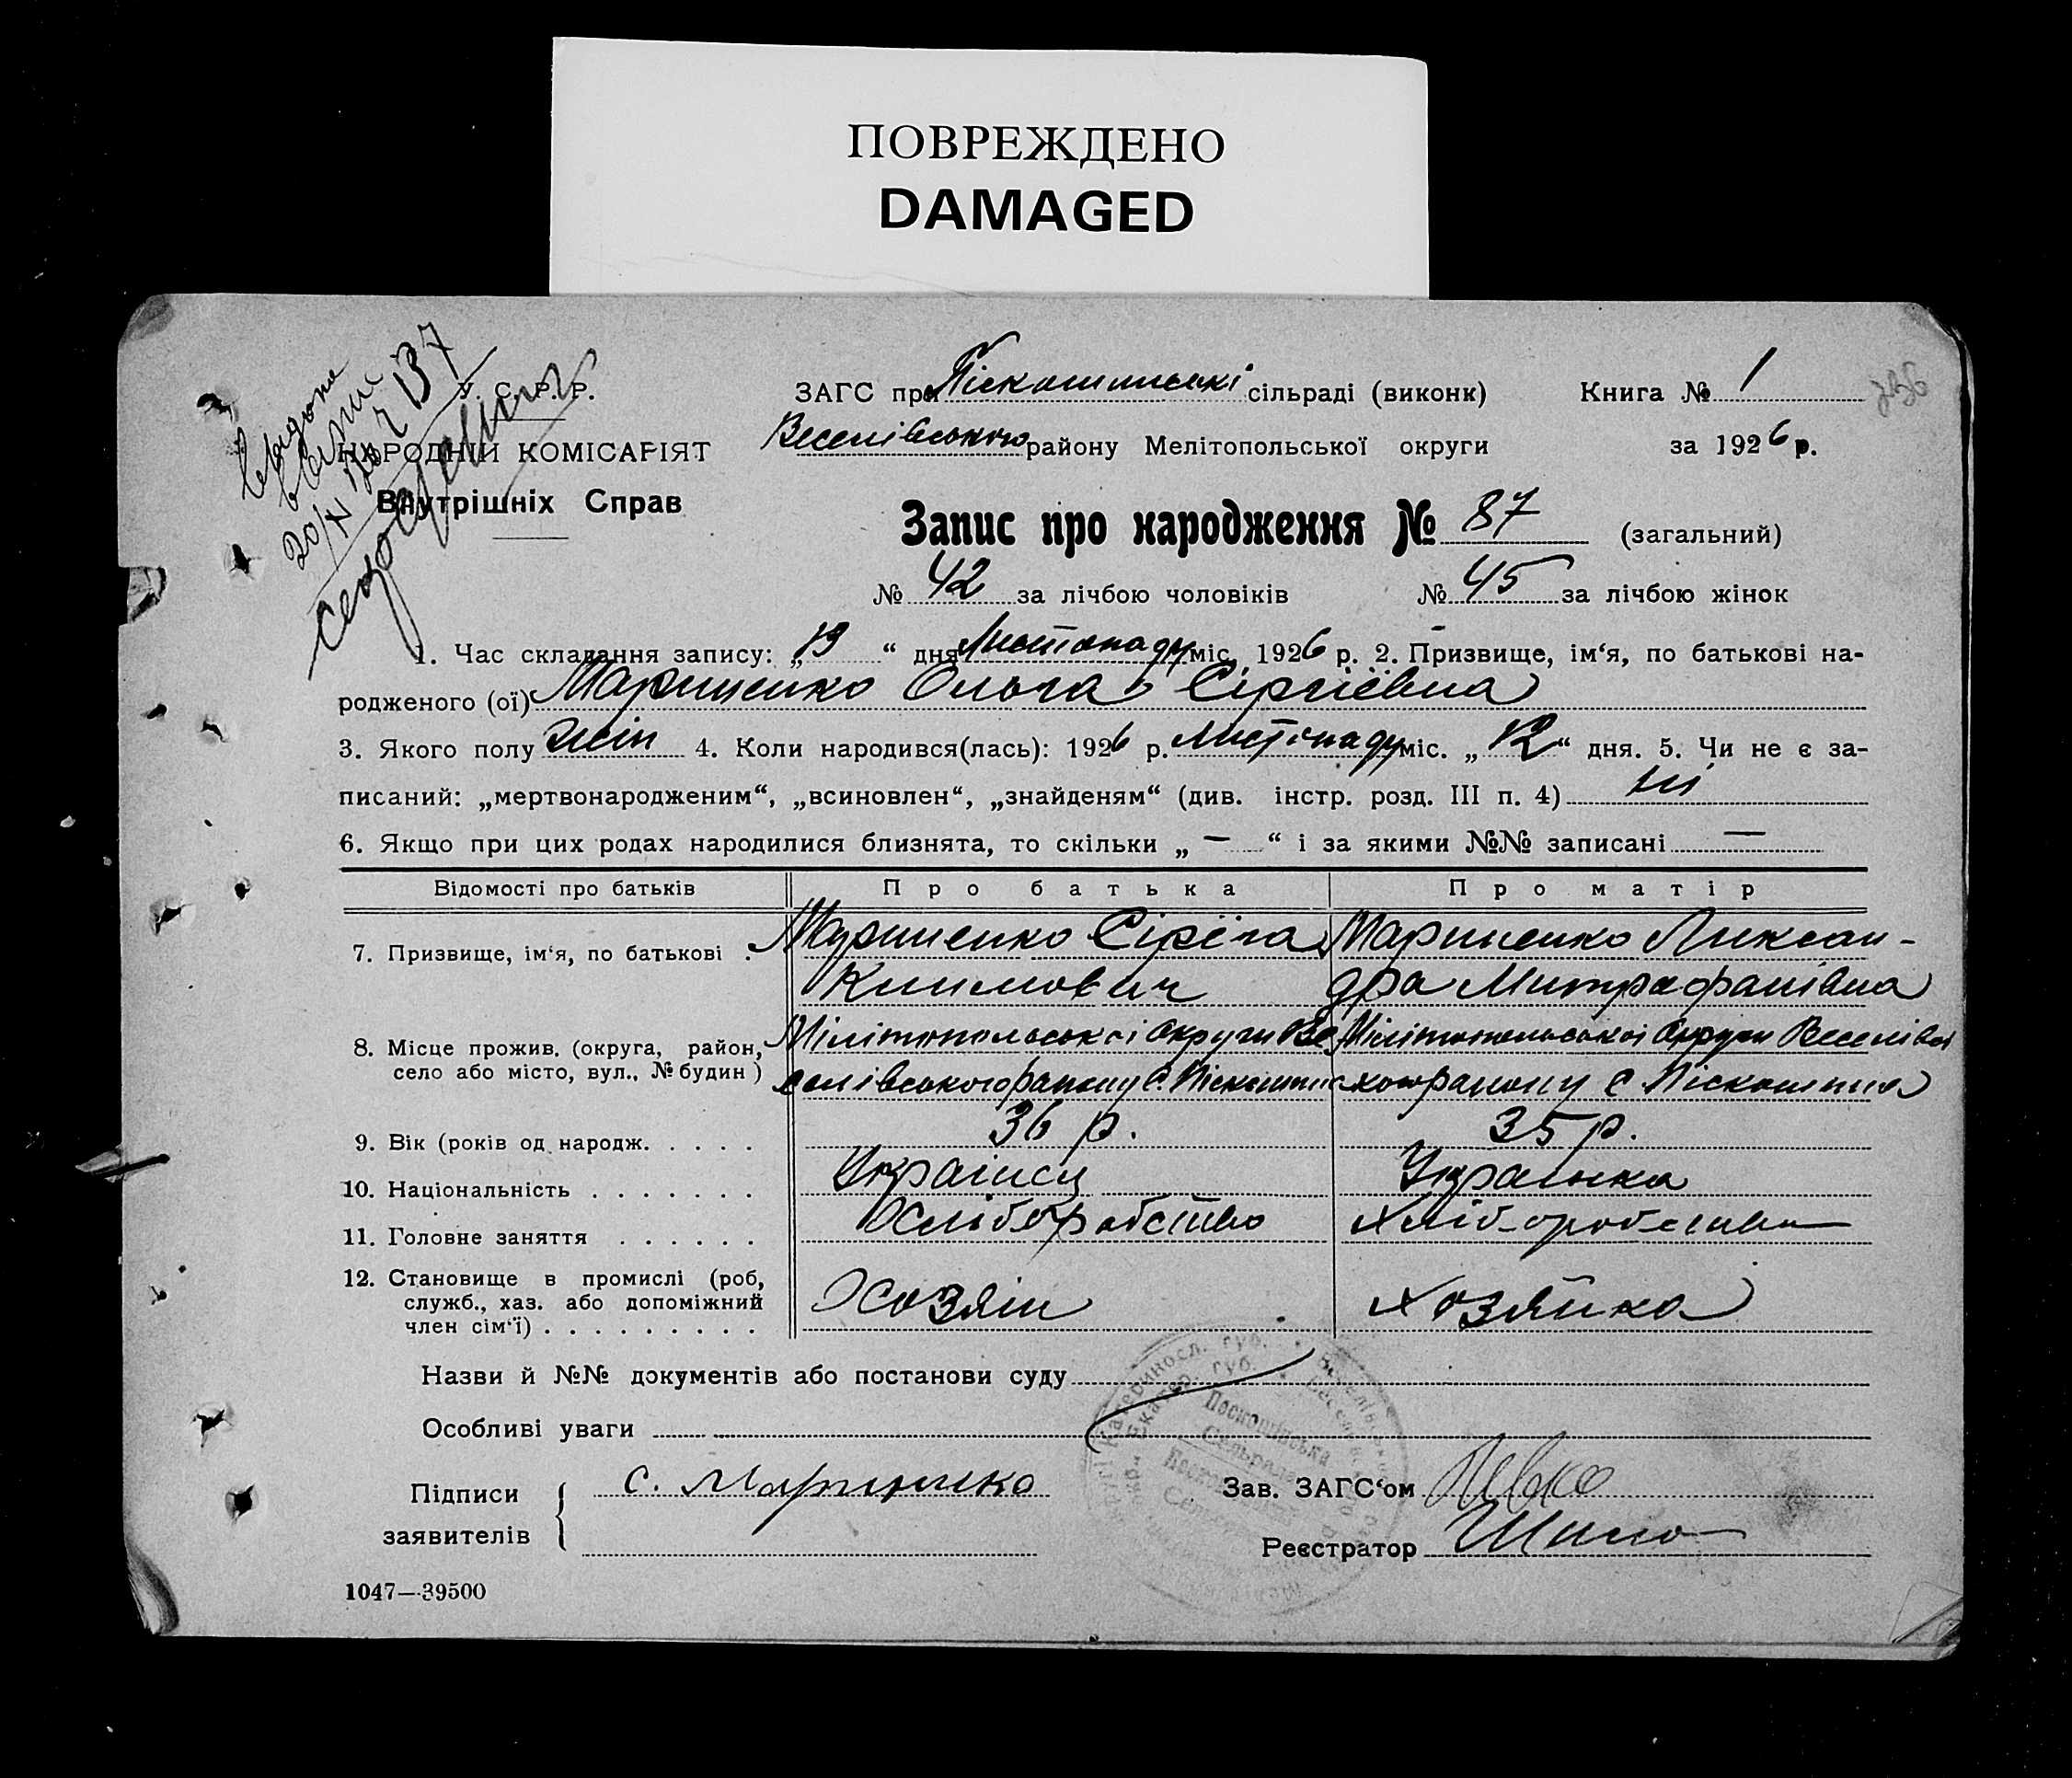 ПОВРЕЖДЕНО
DAMAGED
У. С. Р. Р.
НАРОДНІЙ КОМІСАРІЯТ
Внутрішніх Справ
ЗАГС при Піскошинські сільраді (виконк) Книга № 1
236
Веселівського району Мелітопольської округи за 1926 р.
Запис про народження № 87 (загальний)
№ 42 за лічбою чоловіків № 45 за лічбою жінок
1. Час складання запису: „19“ дня Листопаду міс. 1926 р. 2. Призвище, ім‘я, по батькові на-
родженого (ої) Марищенко Ольга Сіргієвна
3. Якого полу жін 4. Коли народився(лась): 1926 р. Листопаду міс. „12“ дня. 5. Чи не є за-
писаний: „мертвонародженим“, „всиновлен“, „знайденям“ (див. інстр. розд. III п. 4) ні
6. Якщо при цих родах народилися близнята, то скільки „—“ і за якими №№ записані —
Відомості про батьків Про батька Про матір
7. Призвище, ім‘я, по батькові . Сірёга Ликсан-
Климович дра Митрафанівна
8. Місце прожив. (округа, район, Мілітопольської округи Ве Мілітопольської округи Веселівсь
село або місто, вул., № будин) селівського району с. Піскошина кого району с Піскошина
9. Вік (років од народж. . . . . 36 р. 35 р.
10. Національність . . . . . . . Українец Українка
11. Головне заняття . . . . . . Хліборобство Хліборобство
12. Становище в промислі (роб, Хозяїн Хозяйка
служб., хаз. або допоміжний
член сім‘ї) . . . . . . . . .
Назви й №№ документів або постанови суду
Особливі уваги
Підписи С. Зав. ЗАГС‘ом
заявителів Реєстратор
1047—39500